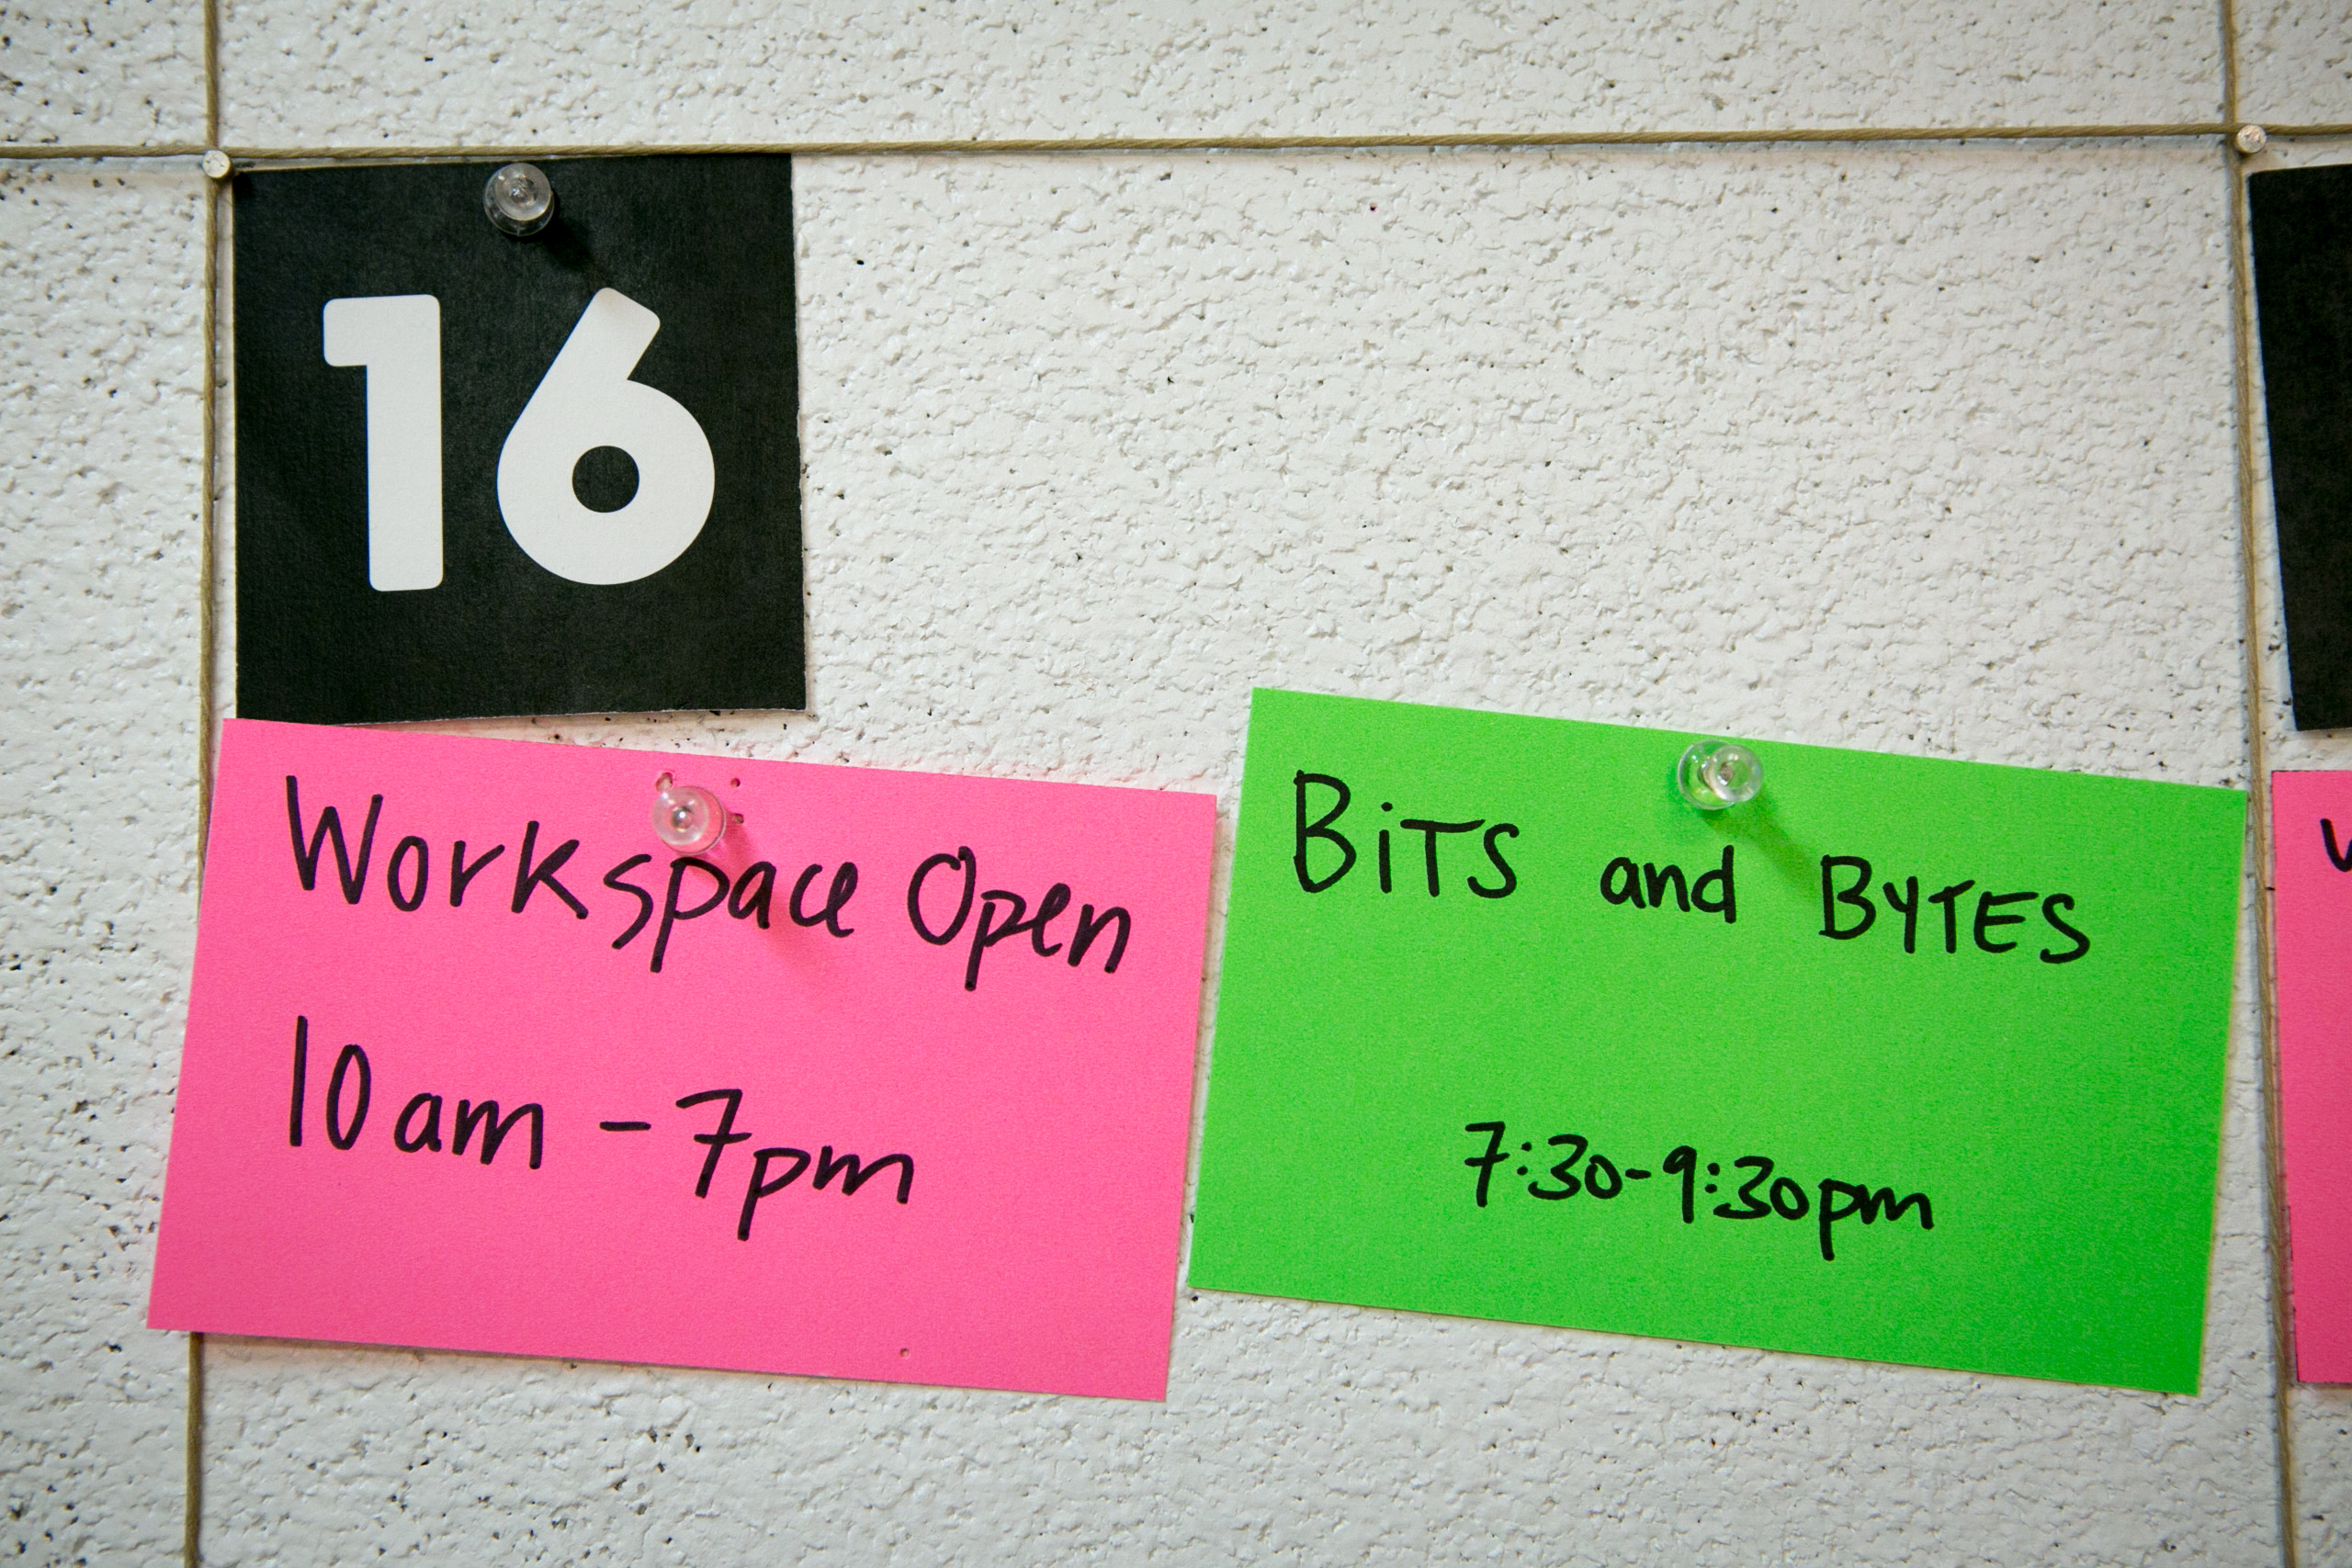 16
Workspace Open
10am - 7pm
BiTS and BYTES
7:30-9:30pm